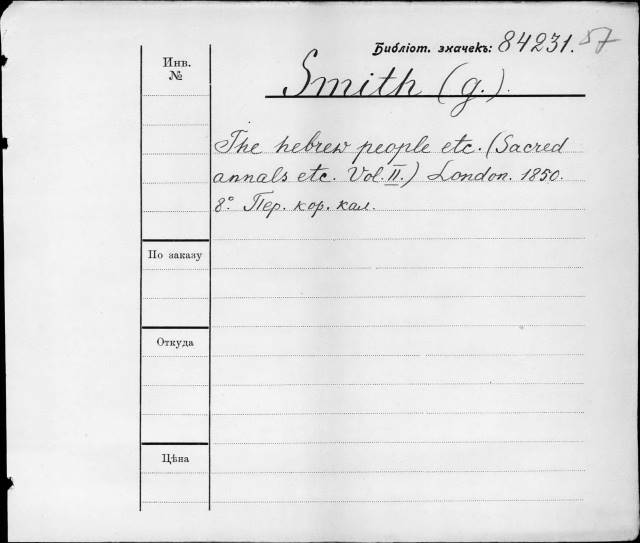 Библіот. значекъ: 84231. 57
Инв.
№
Smith (G.).
The hebrew people etc. (Sacred
annals etc. Vol. II.) London. 1850.
8° Пер. кор. кал.
По заказу
Откуда
Цѣна